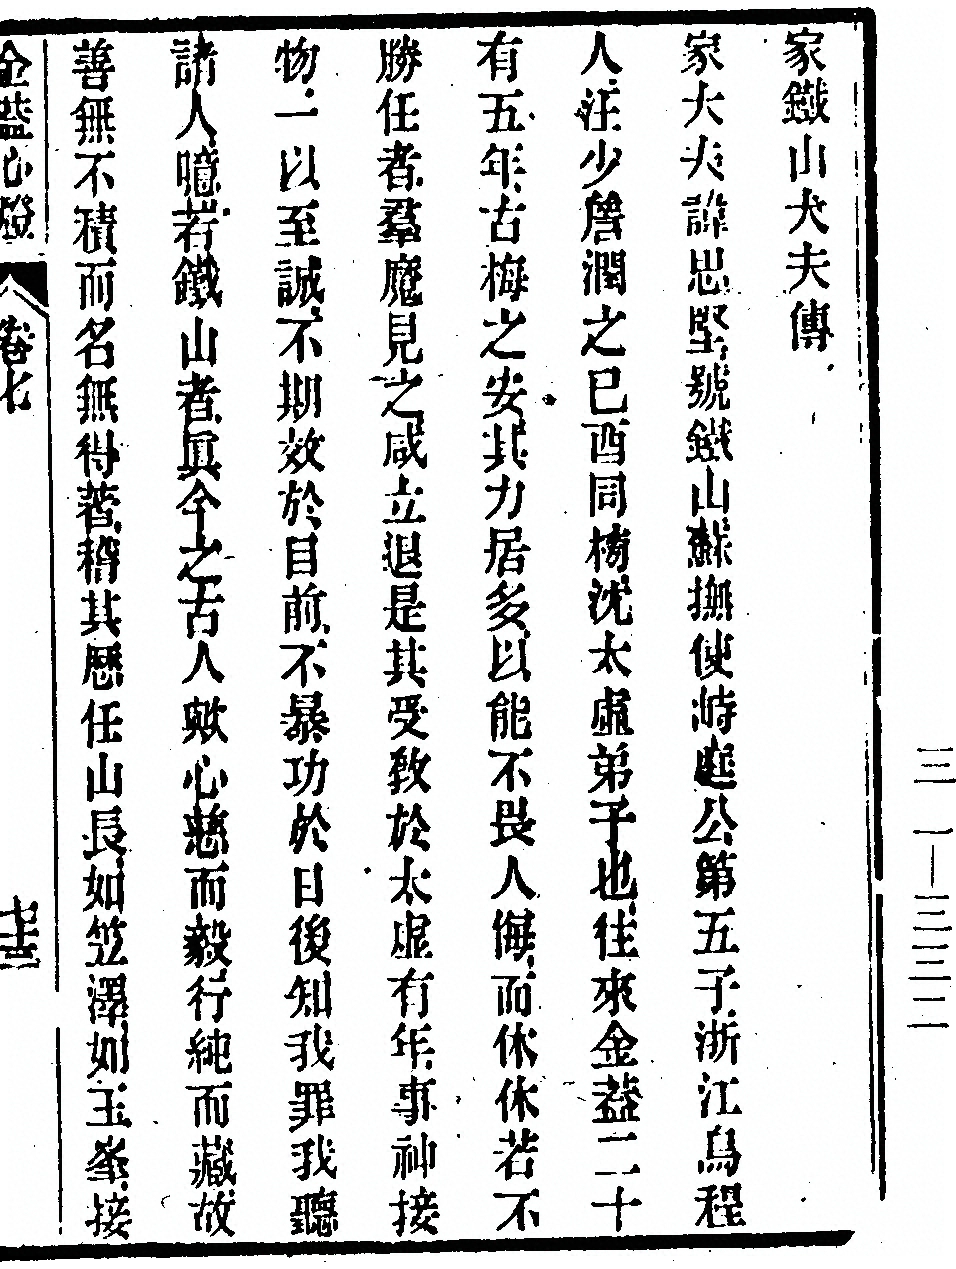 家鐵山大夫傳
家大夫諱思堅號鐵山蘇撫使峙庭公第五子浙江烏程
人汪少詹潤之已酉同榜沈太虛弟子也往來金蓋二十
有五年古梅之安其力居多以能不畏人侮而休休若不
勝任者羣魔見之咸立退是其受敎於太虛有年事神接
物一以至誠不期效於目前不暴功於日後知我罪我聽
諸人噫若鐵山者眞今之古人歟心慈而毅行純而藏故
善無不積而名無得著稽其歷任山長如笠澤如玉峯接
金蓋心燈
卷七
三一—三三二